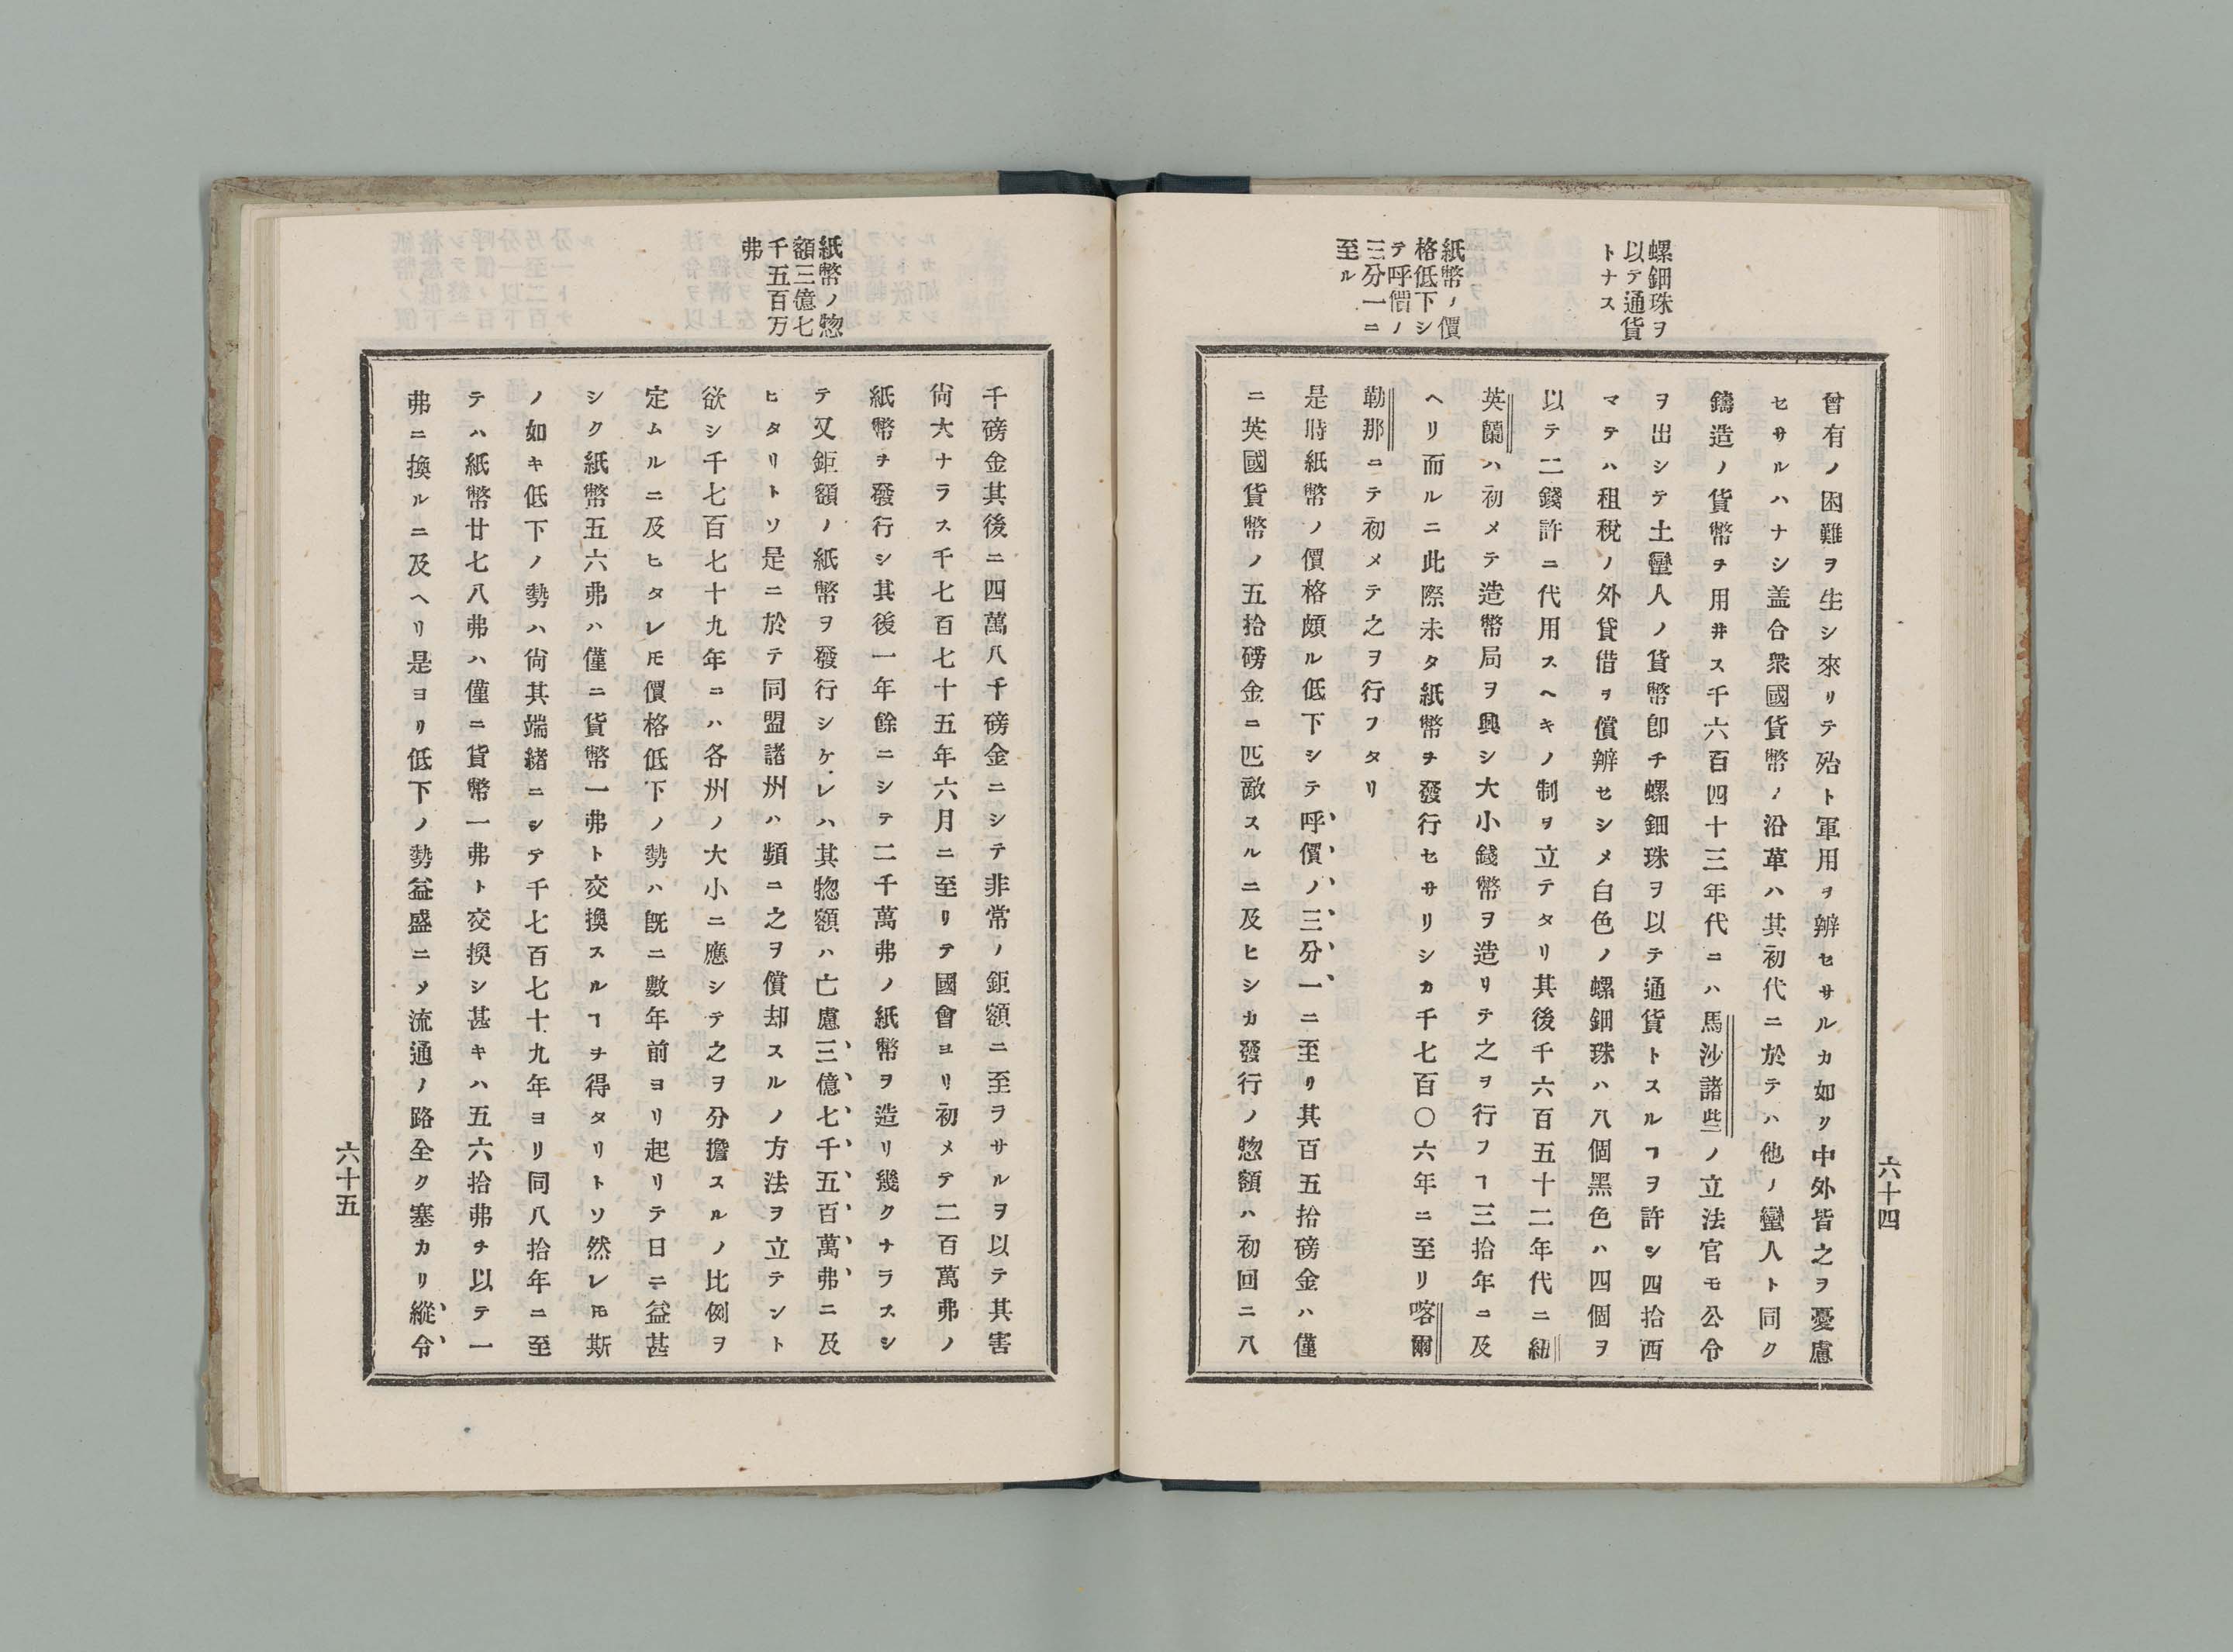 螺鈿珠ヲ
以テ通貨
トナス
紙幣ノ價
格低下シ
テ呼價ノ
三分一ニ
至ル
曾有ノ困難ヲ生シ來リテ殆ト軍用ヲ辨セサルカ如リ中外皆之ヲ憂慮
セサルハナシ盖合衆國貨幣ノ沿革ハ其初代ニ於テハ他ノ蠻人ト同ク
鑄造ノ貨幣ヲ用井ス千六百四十三年代ニハ馬沙諸些ノ立法官モ公令
ヲ出シテ土蠻人ノ貨幣卽チ螺鈿珠ヲ以テ通貨トスルヿヲ許シ四拾西
マテハ租稅ノ外貸借ヲ償辨セシメ白色ノ螺鈿珠ハ八個黑色ハ四個ヲ
以テ二錢許ニ代用スヘキノ制ヲ立テタリ其後千六百五十二年代ニ紐
英蘭ハ初メテ造幣局ヲ興シ大小錢幣ヲ造リテ之ヲ行フヿ三拾年ニ及
ヘリ而ルニ此際未タ紙幣ヲ發行セサリシカ千七百〇六年ニ至リ喀爾
勒那ニテ初メテ之ヲ行フタリ
是時紙幣ノ價格頗ル低下シテ呼價ノ三分一ニ至リ其百五拾磅金ハ僅
ニ英國貨幣ノ五拾磅金ニ匹敵スルニ及ヒシカ發行ノ惣額ハ初回ニ八
六十四
紙幣ノ惣
額三億七
千五百万
弗
千磅金其後ニ四萬八千磅金ニシテ非常ノ鉅額ニ至ラサルヲ以テ其害
尙大ナラス千七百七十五年六月ニ至リテ國會ヨリ初メテ二百萬弗ノ
紙幣ヲ發行シ其後一年餘ニシテ二千萬弗ノ紙幣ヲ造リ幾クナラスシ
テ又鉅額ノ紙幣ヲ發行シケレハ其惣額ハ亡慮三億七千五百萬弗ニ及
ヒタリトソ是ニ於テ同盟諸州ハ頻ニ之ヲ償却スルノ方法ヲ立テント
欲シ千七百七十九年ニハ各州ノ大小ニ應シテ之ヲ分擔スルノ比例ヲ
定ムルニ及ヒタレㇳモ價格低下ノ勢ハ旣ニ數年前ヨリ起リテ日ニ益甚
シク紙幣五六弗ハ僅ニ貨幣一弗ト交換スルヿヲ得タリトソ然レㇳモ斯
ノ如キ低下ノ勢ハ尙其端緖ニシテ千七百七十九年ヨリ同八拾年ニ至
テハ紙幣廿七八弗ハ僅ニ貨幣一弗ト交換シ甚キハ五六拾弗ヲ以テ一
弗ニ換ルニ及ヘリ是ヨリ低下ノ勢益盛ニメ流通ノ路全ク塞カリ縱令
六十五